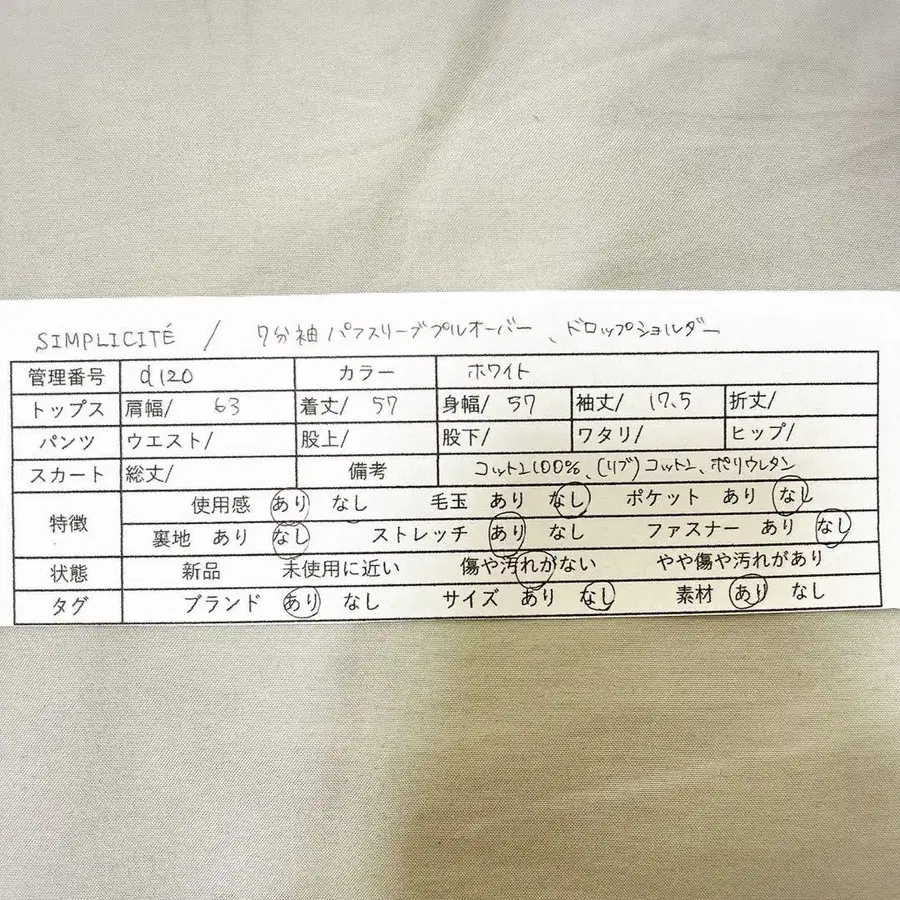 SIMPLICITÉ / 7分袖パフスリーブプルオーバー、ドロップショルダー
管理番号 d120 カラー ホワイト
トップス 肩幅/ 63 着丈/ 57 身幅/ 57 袖丈/ 17.5 折丈/
パンツ ウエスト/ 股上/ 股下/ ワタリ/ ヒップ/
スカート 総丈/ 備考 コットン100%、(リブ)コットン、ポリウレタン
特徴 使用感 あり なし 毛玉 あり なし ポケット あり なし
裏地 あり なし ストレッチ あり なし ファスナー あり なし
状態 新品 未使用に近い 傷や汚れがない やや傷や汚れがあり
タグ ブランド あり なし サイズ あり なし 素材 あり なし